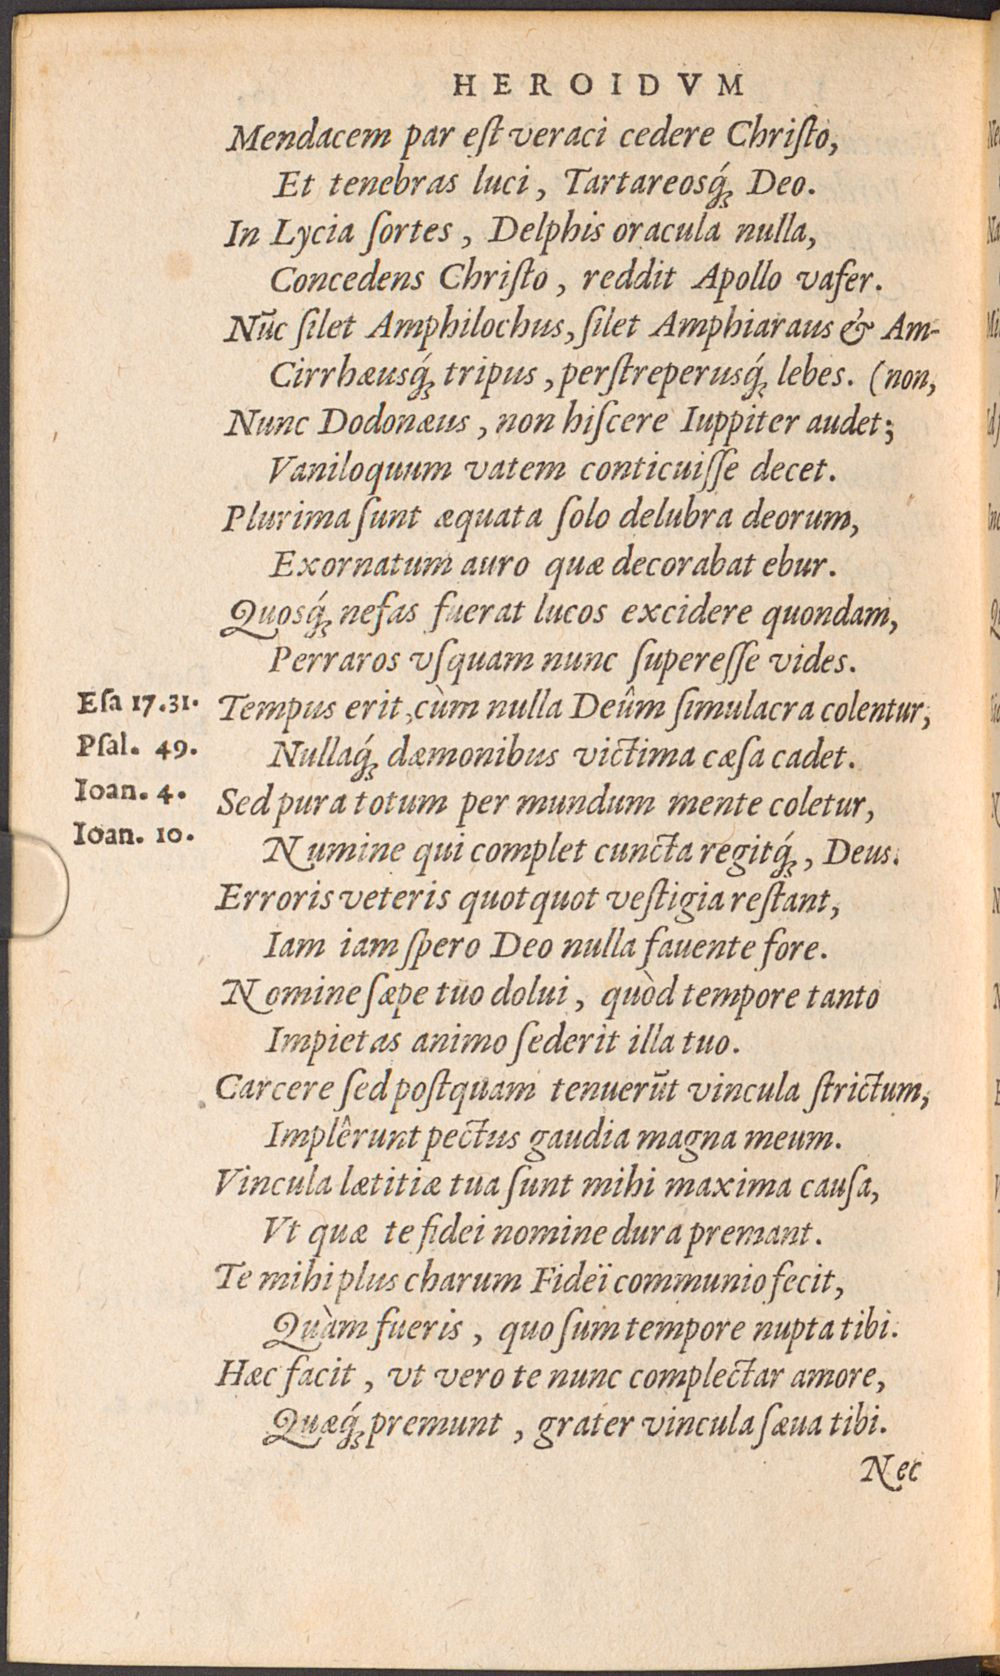 HEROIDVM
Mendacem par eſt veraci cedere Chriſto,
Et tenebras luci, Tartareosq́; Deo.
In Lycia ſortes, Delphis oracula nulla,
Concedens Chriſto, reddit Apollo vafer.
Nūc ſilet Amphilochus, ſilet Amphiaraus & Am-
Cirrhæusq́; tripus, perſtreperusq́; lebes. (non,
Nunc Dodonæus, non hiſcere Iuppiter audet;
Vaniloquum vatem conticuiſſe decet.
Plurima ſunt æquata ſolo delubra deorum,
Exornatum auro quæ decorabat ebur.
Quosq́; nefas fuerat lucos excidere quondam,
Perraros vſquam nunc ſupereſſe vides.
Eſa 17.31. Tempus erit, cùm nulla Deûm ſimulacra colentur,
Pſal. 49. Nullaq́; dæmonibus victima cæſa cadet.
Ioan. 4. Sed pura totum per mundum mente coletur,
Ioan. 10. Numine qui complet cuncta regitq́;, Deus.
Erroris veteris quotquot veſtigia reſtant,
Iam iam ſpero Deo nulla fauente fore.
Nomine ſæpe tuo dolui, quòd tempore tanto
Impietas animo ſederit illa tuo.
Carcere ſed poſtquam tenuerūt vincula ſtrictum,
Implêrunt pectus gaudia magna meum.
Vincula lætitiæ tua ſunt mihi maxima cauſa,
Vt quæ te fidei nomine dura premant.
Te mihi plus charum Fideï communio fecit,
Quàm fueris, quo ſum tempore nupta tibi.
Hæc facit, vt vero te nunc complectar amore,
Quæq́; premunt, grater vincula ſæua tibi.
Nec